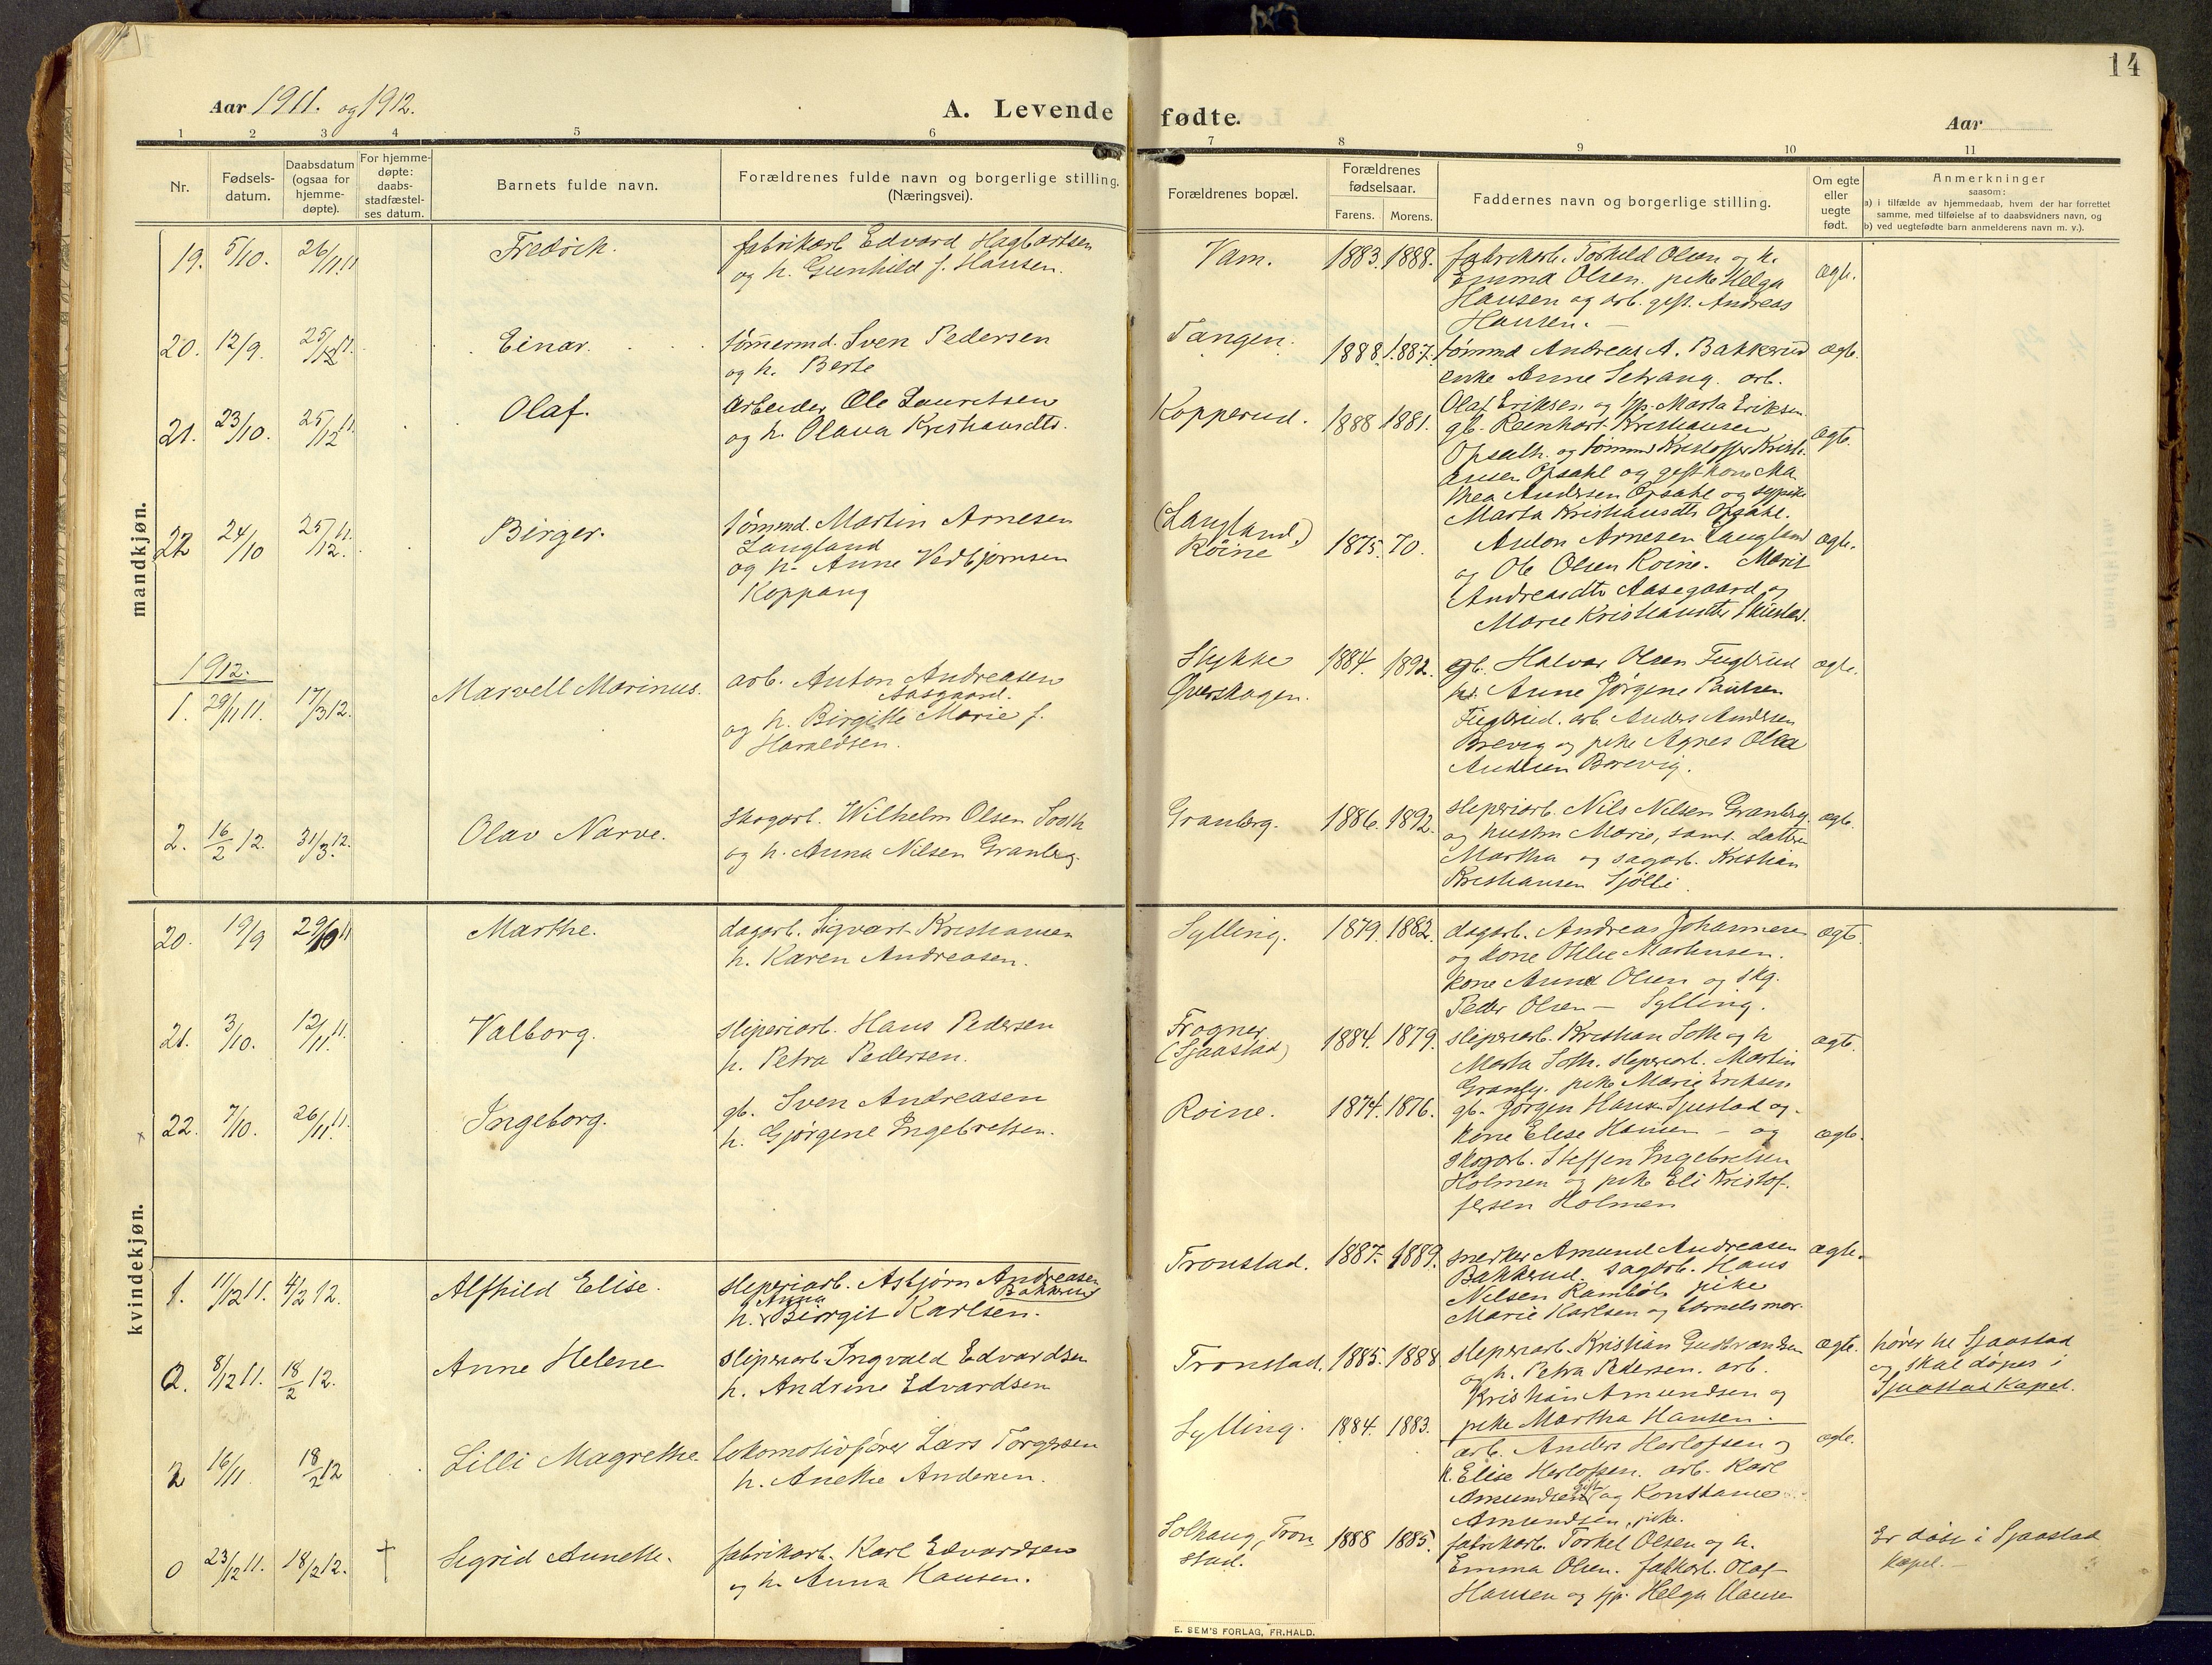 14
Aar 1911. og 1912.
A. Levende fødte.
Aar
1 2 3 4 5 6 7 8 9 10 11
Nr.
Fødsels-
datum.
Daabsdatum
(ogsaa for
hjemme-
døpte).
For hjemme-
døpte:
daabs-
stadfæstel-
ses datum.
Barnets fulde navn.
Forældrenes fulde navn og borgerlige stilling.
(Næringsvei).
Forældrenes bopæl.
Forældrenes
fødselsaar.
Farens. Morens.
Faddernes navn og borgerlige stilling.
Om egte
eller
uegte
født.
Anmerkninger
saasom:
a) i tilfælde av hjemmedaab, hvem der har forrettet
samme, med tilføielse af to daabsvidners navn, og
b) ved uegtefødte barn anmelderens navn m. v.).
mandkjøn.
19. 5/10. 26/11 11 Fredrik.
fabrikarb Edvard Hagbartsen
og h. Gunhild f. Hansen.
Vam. 1883. 1888.
fabrikarb. Torkild Olsen og h.
Emma Olsen. pike Helga
Hansen og arb. gift. Andreas
Hansen.
ægte.
20. 12/9. 25/12 11. Einar.
tømermd. Sven Pedersen
og h. Berte
Tangen. 1888. 1887.
tømmd Andreas A. Bakkerud
enke Anne Setrang. arb.
Olaf Eriksen og Marta Eriksen.
ægte.
21. 23/10. 25/12 11. Olaf.
Arbeider Ole Lauritsen
og h. Olava Kristiansdtr.
Kopperud. 1888 1881.
gb. Reinhart Kristiansen
Opsahl. og tømmd Kristoffer Kristi-
ansen Opsahl og gift kone Ma
thea Andersen Opsahl og sypike
Marta Kristiansdtr Opsahl.
ægte.
22 24/10 25/12 11. Birger.
tømmd. Martin Arnesen
Langland
og h. Anne Vedbjørnsen
Koppang
(Langland)
Röine 1875. 70.
Anton Arnesen Langland
og Ole Olsen Roine. Marit
Andreasdtr Aasegaard og
Marie Kristiansdtr
ægte.
1912.
1. 29/11 11. 17/3 12. Marvell Marinus.
arb. Anton Andreasen
Aasgaard.
og h. Birgitte Marie f.
Haraldsen.
Stykke
Øverskogen. 1884. 1892.
gb. Halvar Olsen Fuglerud
h. Anne Jørgene Paulsen
Fuglerud. arb. Anders Andersen
Brevig og pike Agnes Olea
Andersen Brevig.
ægte.
2. 16/2 12. 31/3 12. Olav Narve.
Skogarb. Wilhelm Olsen Soth
og h. Anna Nilsen Granberg.
Granberg. 1886. 1892.
sliperiarb. Nils Nilsen Granberg.
og hustru Marie, samt datter
Martha og sagarb. Kristian
Kristiansen Sjølli.
ægte.
kvindekjøn.
20. 19/9 29/10 11 Marthe.
dagarb. Sigvart Kristiansen
h. Karen Andreasen.
Sylling. 1879. 1882.
dagarb. Andreas Johannesen
og kone Othlie Mathisen.
kone Anne Olsen og skg.
Peder Olsen – Sylling.
ægte.
21. 3/10. 12/11 11. Valborg.
sliperiarb. Hans Pedersen
h. Petra Pedersen.
Frogner
(Sjaastad) 1884. 1879.
sliperiarb. Kristian Soth og h
Marta Soth. sliperiarb. Martin
Granby. pike Marie Eriksen
ægte.
x 22. 7/10. 26/11 11. Ingeborg.
gb. Sven Andreasen
h. Gjørgene Ingebretsen.
Roine. 1874. 1876.
gb. Jørgen Hansen Sjustad og.
kone Elise Hansen – og
skogarb. Steffen Ingebretsen
Holmen og pike Eli Kristof-
fersen Holmen
ægte.
1. 11/12 11. 4/2 12. Alfhild Elise.
sliperiarb. Asbjørn Andreasen
Bakkerud
Anna
h. Birgit Karlsen.
Tronstad. 1887. 1889.
snekker Amund Andreasen
Bakkerud. sagarb. Hans
Nilsen Rambøl, pike
Marie Karlsen og barnets mor.
ægte.
2. 8/12 11. 18/2 12. Anne Helene
sliperiarb Ingvald Edvardsen
h. Andrine Edvardsen
Tronstad. 1885. 1888
sliperiarb. Kristian
og h. Petra Pedersen. arb.
Kristian Amundsen og
pike Martha Hansen.
ægte.
hører til Sjaastad
og skal døpes i
Sjaastad Kapel.
2 16/11. 18/2 12 Lilli Magrethe.
lokomotivfører Lars Torgersen
h. Anethe Andersen.
Sylling. 1884. 1883.
arb. Anders Herlofsen og
h. Elise Herlofsen. arb. Karl
Amundsen gift og Konstance
Amundsen, pike.
ægte.
0 23/12 11. 18/2 12. † Sigrid Annette.
fabrikarb. Karl Edvardsen
og h. Anna Hansen.
Solhaug, Tron
stad. 1888 1885.
fabrikarb. Torkel Olsen og h.
Emma Olsen. fabkarb. Olaf
Hansen og Helga Hansen
Er døbt i Sjaastad
Kapel. –
E. SEM'S FORLAG, FR.HALD.